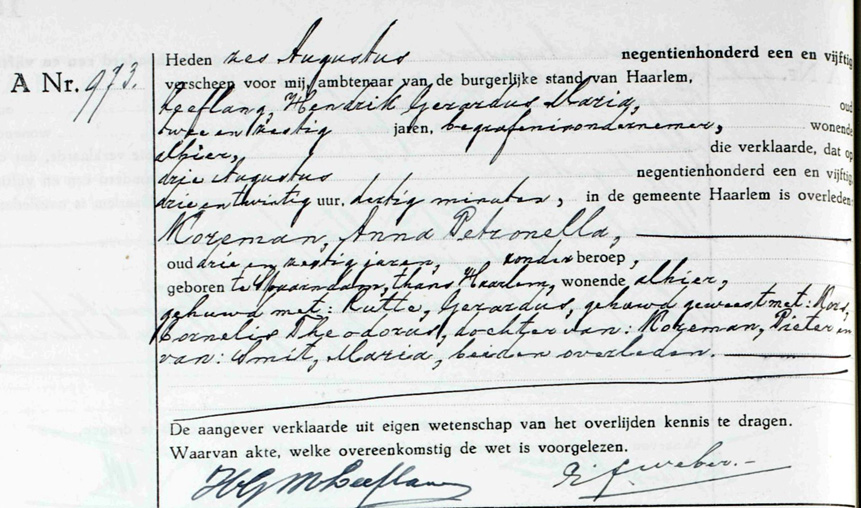 Heden zes Augustus negentienhonderd een en vijftig
A Nr. 973. verscheen voor mij, ambtenaar van de burgerlijke stand van Haarlem,
Leeflang, Hendrik Gerardus Maria, oud
twee en zestig jaren, begrafenisondernemer, wonende
alhier, die verklaarde, dat op
drie Augustus negentienhonderd een en vijftig
drie en twintig uur, dertig minuten, in de gemeente Haarlem is overleden:
Kozeman, Anna Petronella,
oud drie en zestig jaren, zonder beroep,
geboren te Spaarndam, thans Haarlem, wonende alhier,
gehuwd met: Rutte, Gerardus, gehuwd geweest met: Kors,
Cornelis Theodorus, dochter van: Kozeman, Pieter en
van: Smit, Maria, beiden overleden.
De aangever verklaarde uit eigen wetenschap van het overlijden kennis te dragen.
Waarvan akte, welke overeenkomstig de wet is voorgelezen.
HGM Leeflang weber.-